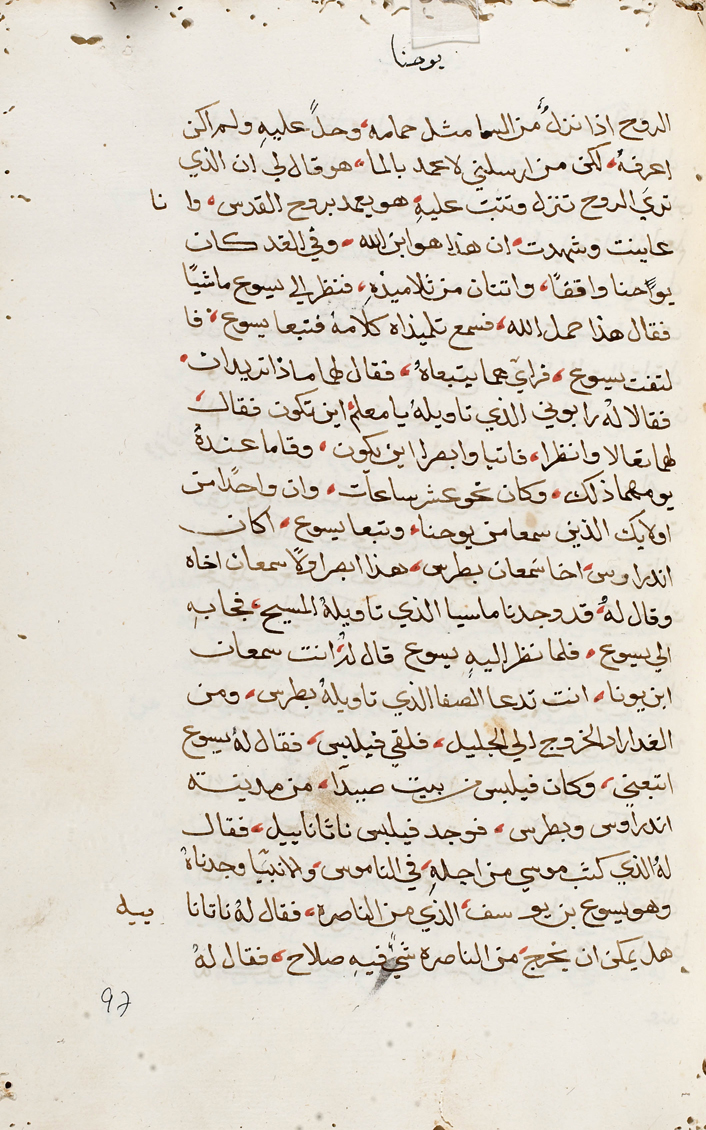 يوحنا
الروح اذا نزل من السما مثل حمامه، وحلً عليهِ ولم اكن
اعرفهُ، لكن من ارسلني لاعمد بالما، هو قال لي ان الذي
تري الروح تنزل وتثبت عليهِ، هو يعمد بروح القدس، وا نا
عاينت وشهدت، ان هذا هو ابن الله، وفي الغد كان
يواحنا واقفًا، واتنان من تلاميذهِ، فنظر الي يسوع ماشيًا
فقال هذا حمل الله، فسمع تلميذاه كلامهُ فتبعا يسوع، فا
لتفت يسوع، فراي هما يتبعاهُ، فقال لهما ماذا تريدان،
فقالا لهُ رابوني الذي تاويلهُ يا معلم، اين تكون فقال
لهما تعالا وانظرا، فاتيا وابصرا اين يكون، وقاما عندهُ
يومهما ذلك، وكان نحو عشر ساعات، وان واحدًا من
اولايك الذين سمعا من يوحنا، وتبعا يسوع، اكان
اندراوس، اخا سمعان بطرس، هذا ابصر اولًا سمعان اخاه
وقال لهُ، قد وجدنا ماسيا الذي تاويلهُ المسيح، فجا بهِ
الي يسوع، فلما نظر اليهِ يسوع قال لهُ، انت سمعان
ابن يونا، انت تدعا الصفا الذي تاويلهُ بطرس، ومن
الغد اراد الخروج الي الجليل، فلقي فيلبس، فقال لهُ يسوع
اتبعني، وكان فيلبس من بيت صيدا، من مدينته
اندراوس وبطرس، فوجد فيلبس ناتاناييل، فقال
لهُ الذي كتب موسي من اجلهِ، في الناموس، والانبيا وجدناهُ
وهو يسوع بن يو سف، الذي من الناصره، فقال لهُ ناتانا ييل
هل يمكن ان يخرج، من الناصره شي فيهِ صلاح، فقال لهُ
97